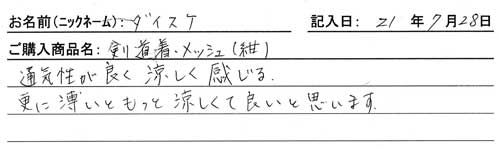 お名前(ニックネーム):ダイスケ 記入日: 21 年 7月28日
ご購入商品名: 剣道着.メッシュ(紺)
通気性が良く涼しく感じる.
更に薄いともっと涼しくて良いと思います.